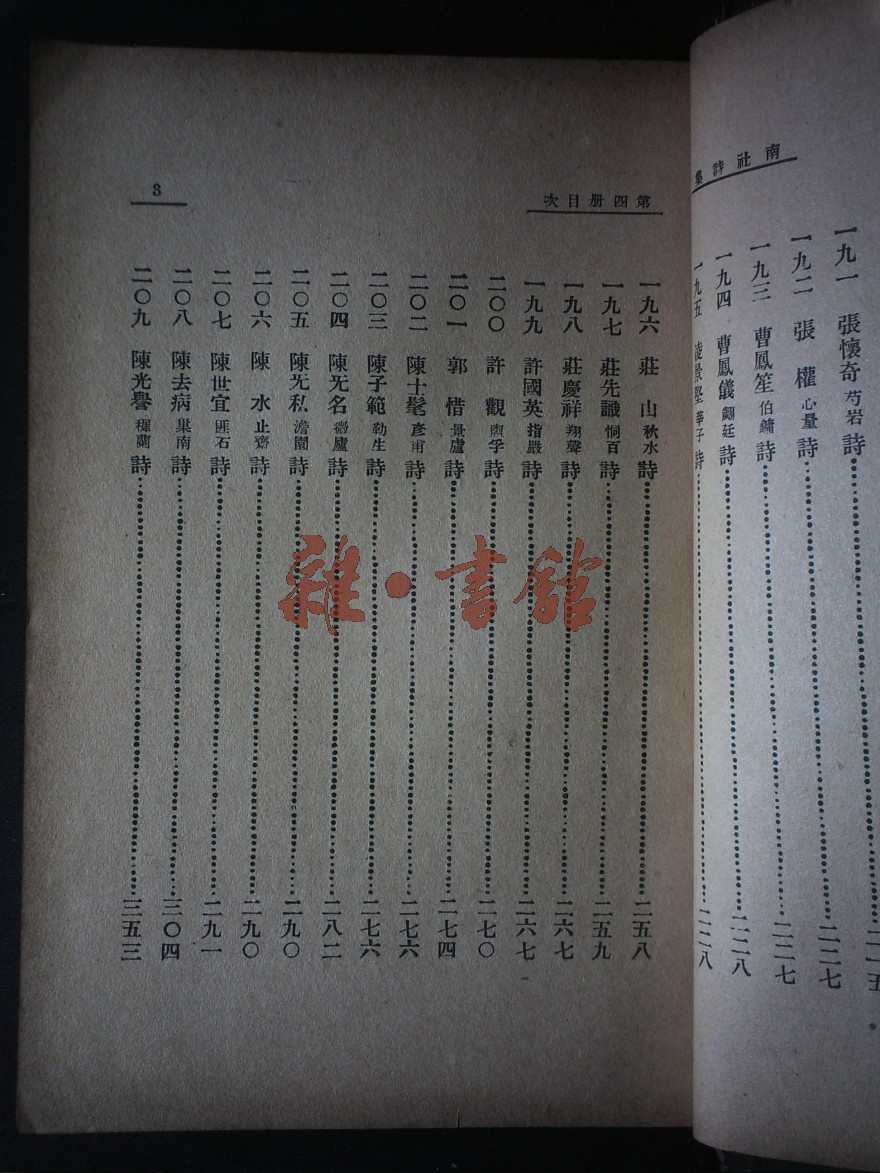 南社詩集
一九一 張懷奇 芍岩 詩 二一五
一九二 張權 心量 詩 二二七
一九三 曹鳳笙 伯鏞 詩 二二七
一九四 曹鳳儀 翽廷 詩 二二八
一九五 凌景堅 莘子 詩 二二八
第四册目次
一九六 莊山 秋水 詩 二五八
一九七 莊先識 恫百 詩 二五九
一九八 莊慶祥 翔聲 詩 二六七
一九九 許國英 指嚴 詩 二六七
二〇〇 許觀 詩 二七〇
二〇一 郭惜 景廬 詩 二七四
二〇二 陳士髦 彥甫 詩 二七六
二〇三 陳子範 勒生 詩 二七六
二〇四 陳旡名 詩 二八二
二〇五 陳旡私 澹園 詩 二九〇
二〇六 陳水 止齋 詩 二九〇
二〇七 陳世宜 匪石 詩 二九一
二〇八 陳去病 巢南 詩 三〇四
二〇九 陳光譽 穉蘭 詩 三五三
3
雜·書館